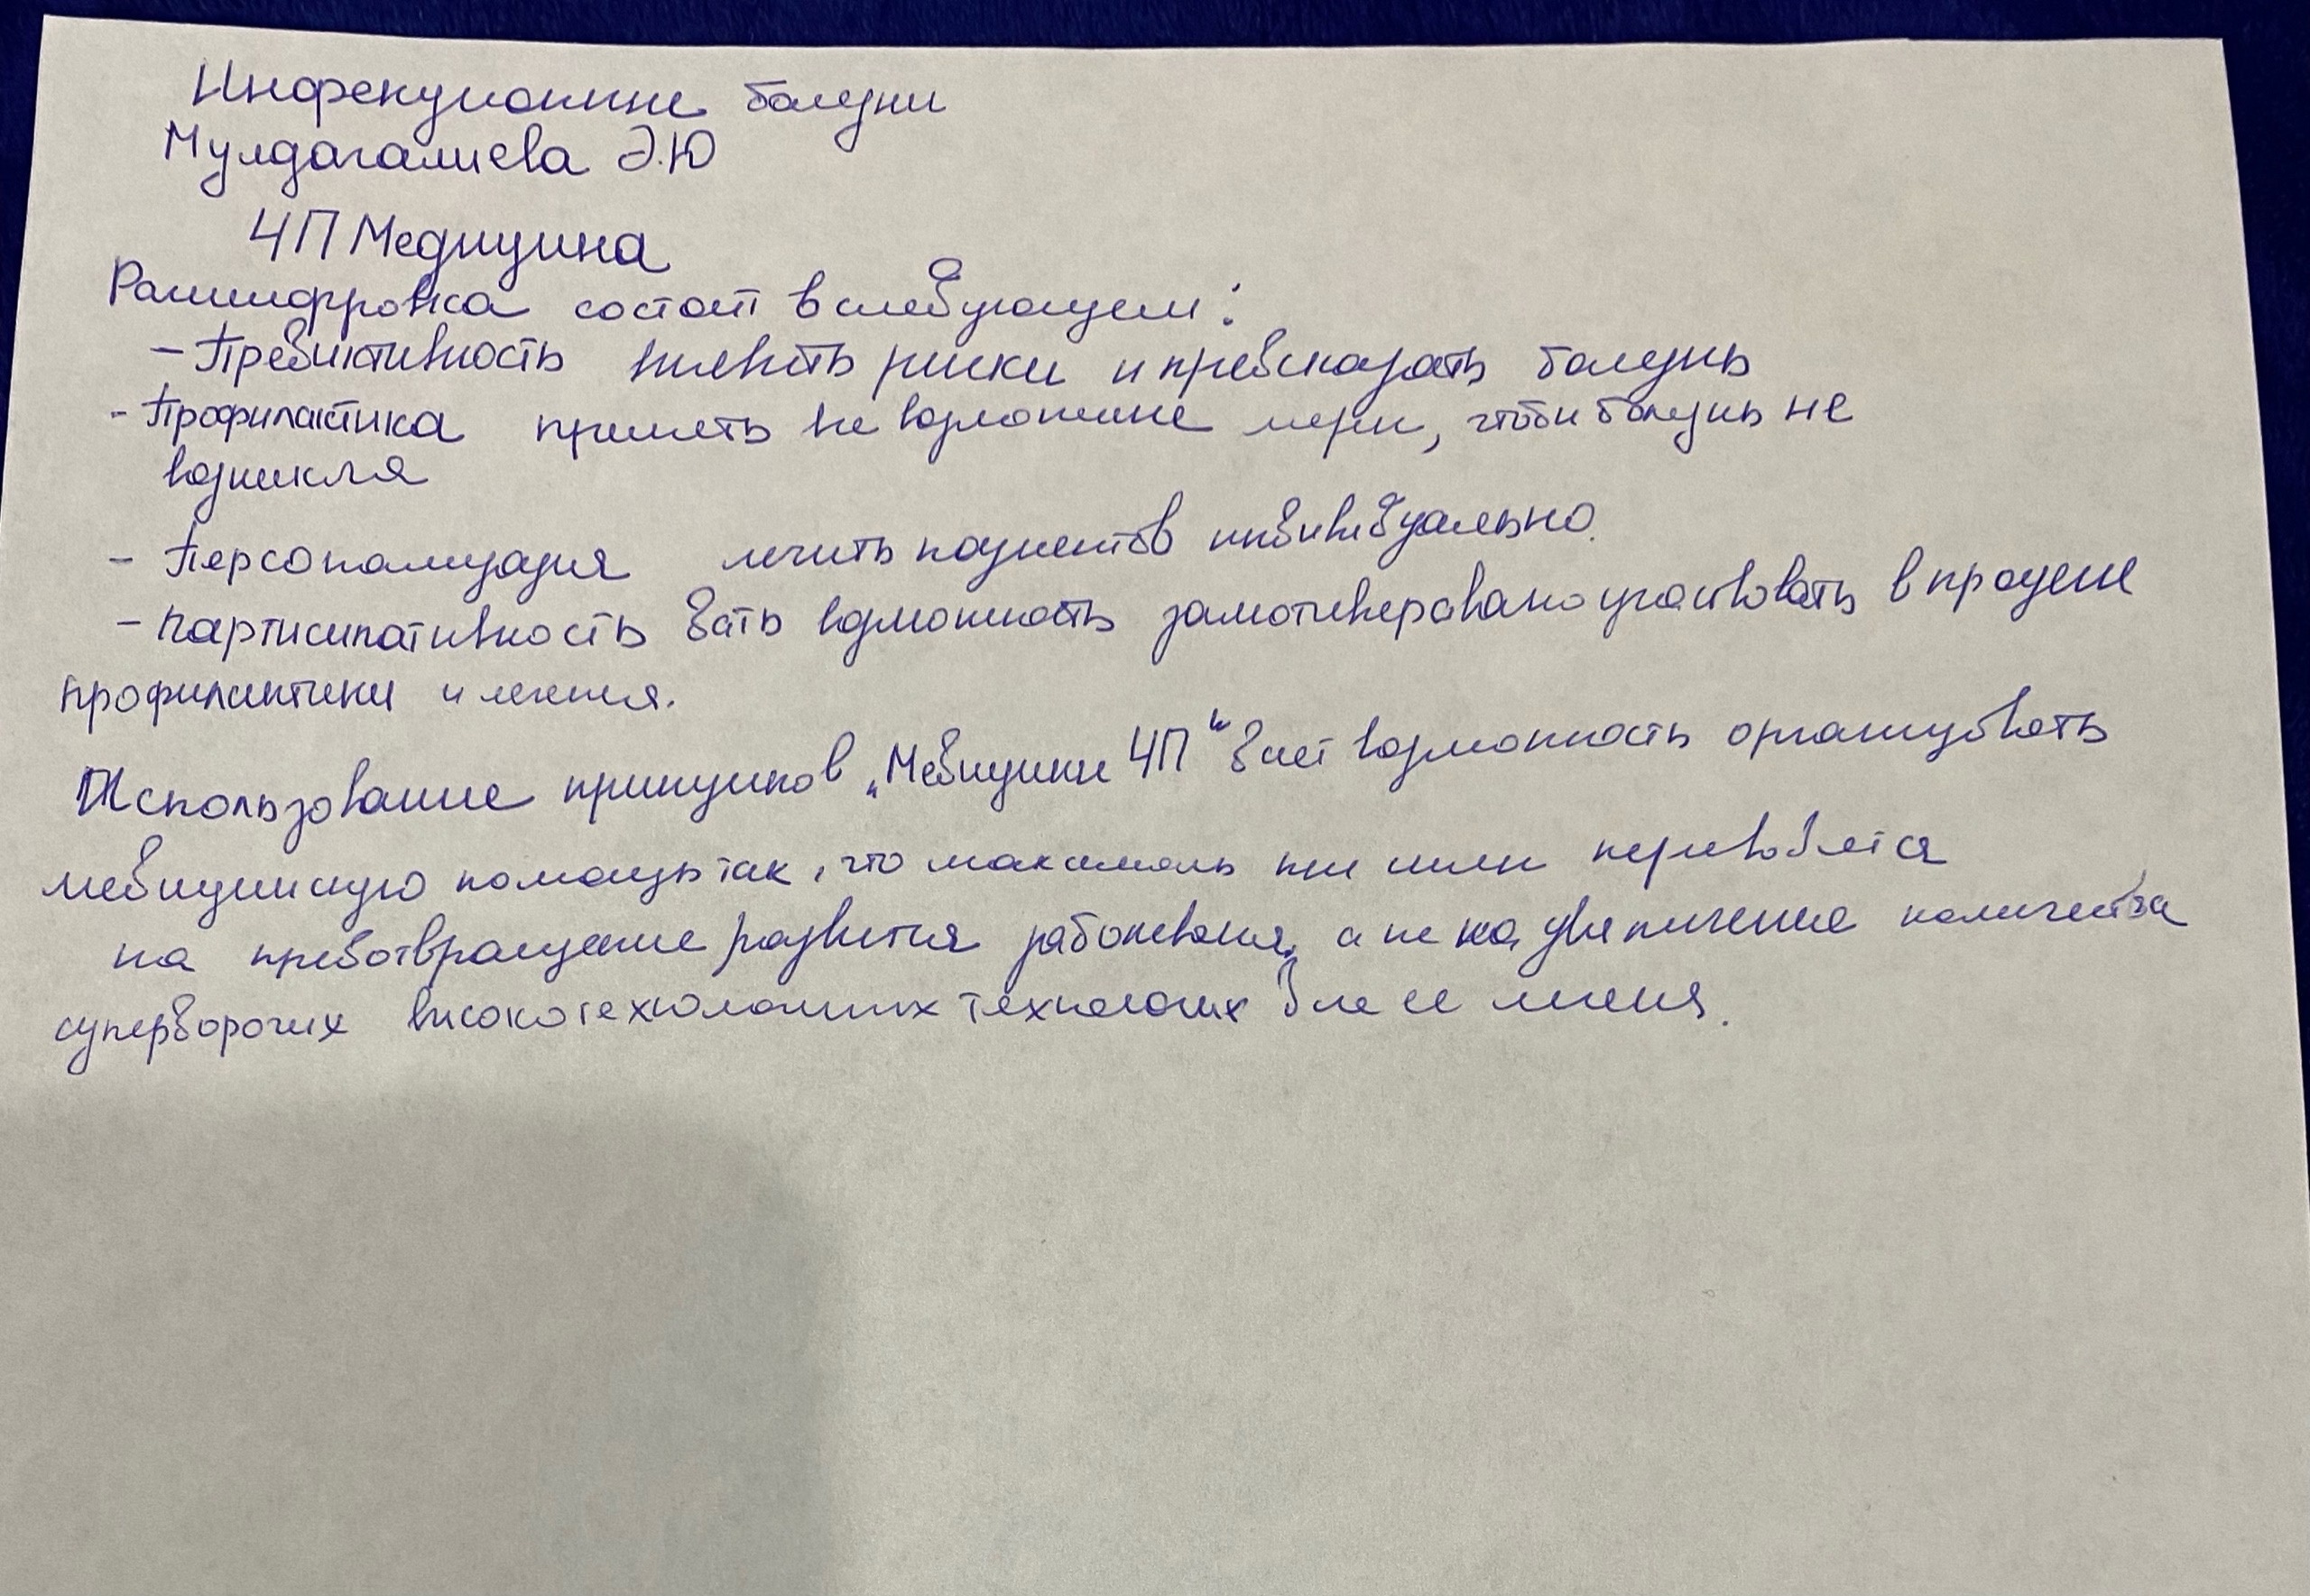 Инфекционные болезни
Мулдагалиева Э.Ю
4П Медицина
Расшифровка состоит в следующем:
- Предиктивность выявить риски и предсказать болезнь
- Профилактика принять все возможные меры, чтобы болезнь не
возникля
- Персонализация лечить пациентов индивидуально.
- партисипативность дать возможность замотивировано участвовать в процессе
профилактики и лечения.
Использование принципов „Медицины 4П" дает возможность организовать
медицинскую помощь так, что максимально переводится
на предотвращение развития заболевания, а не на увеличение количества
супердорогих высокотехнологичных технологиях для ее лечения.